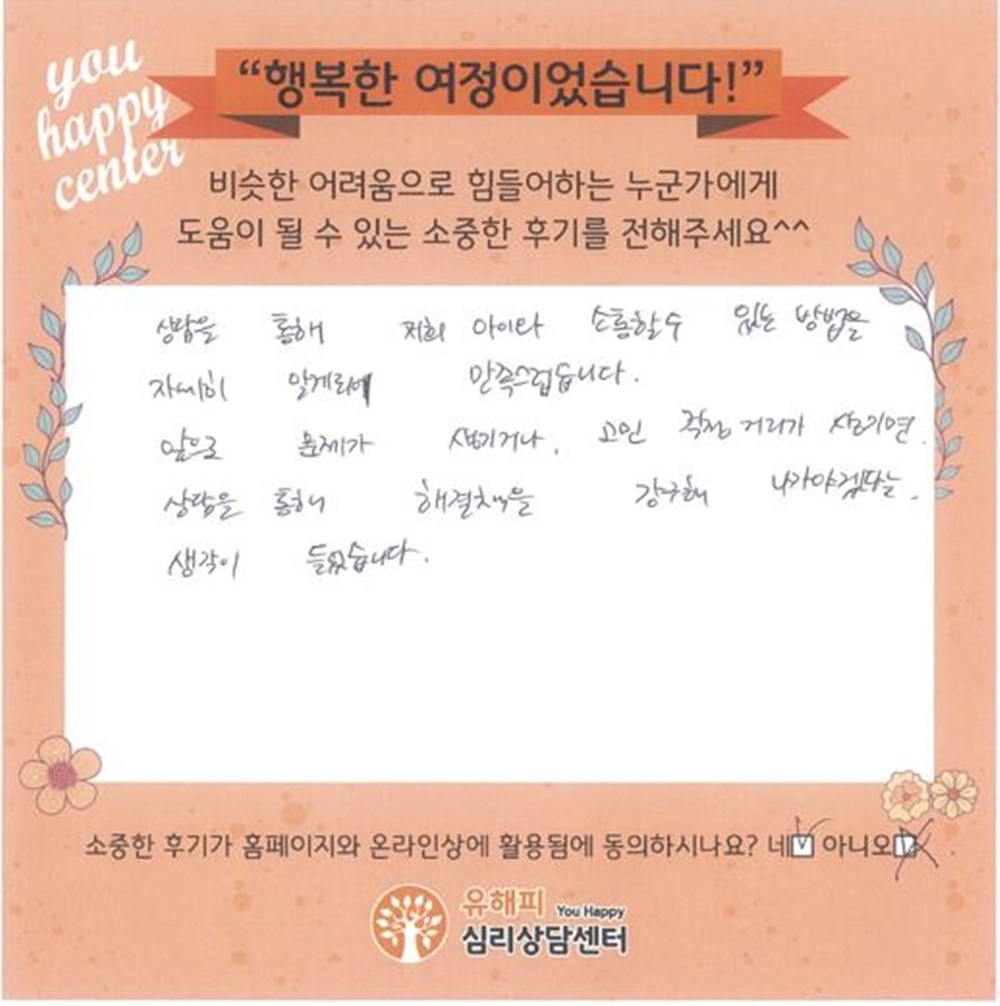 you
happy
center
“행복한 여정이었습니다!”
비슷한 어려움으로 힘들어하는 누군가에게
도움이 될 수 있는 소중한 후기를 전해주세요^^
상담을 통해 저희 아이와 소통할수 있는 방법을
자세히 알게되어 만족스럽습니다.
앞으로 문제가 생기거나, 고민 걱정 거리가 생기면.
상담을 통해 해결책을 강구해 나가야겠다는.
생각이 들었습니다.
소중한 후기가 홈페이지와 온라인상에 활용됨에 동의하시나요? 네 아니오
유해피 You Happy
심리상담센터